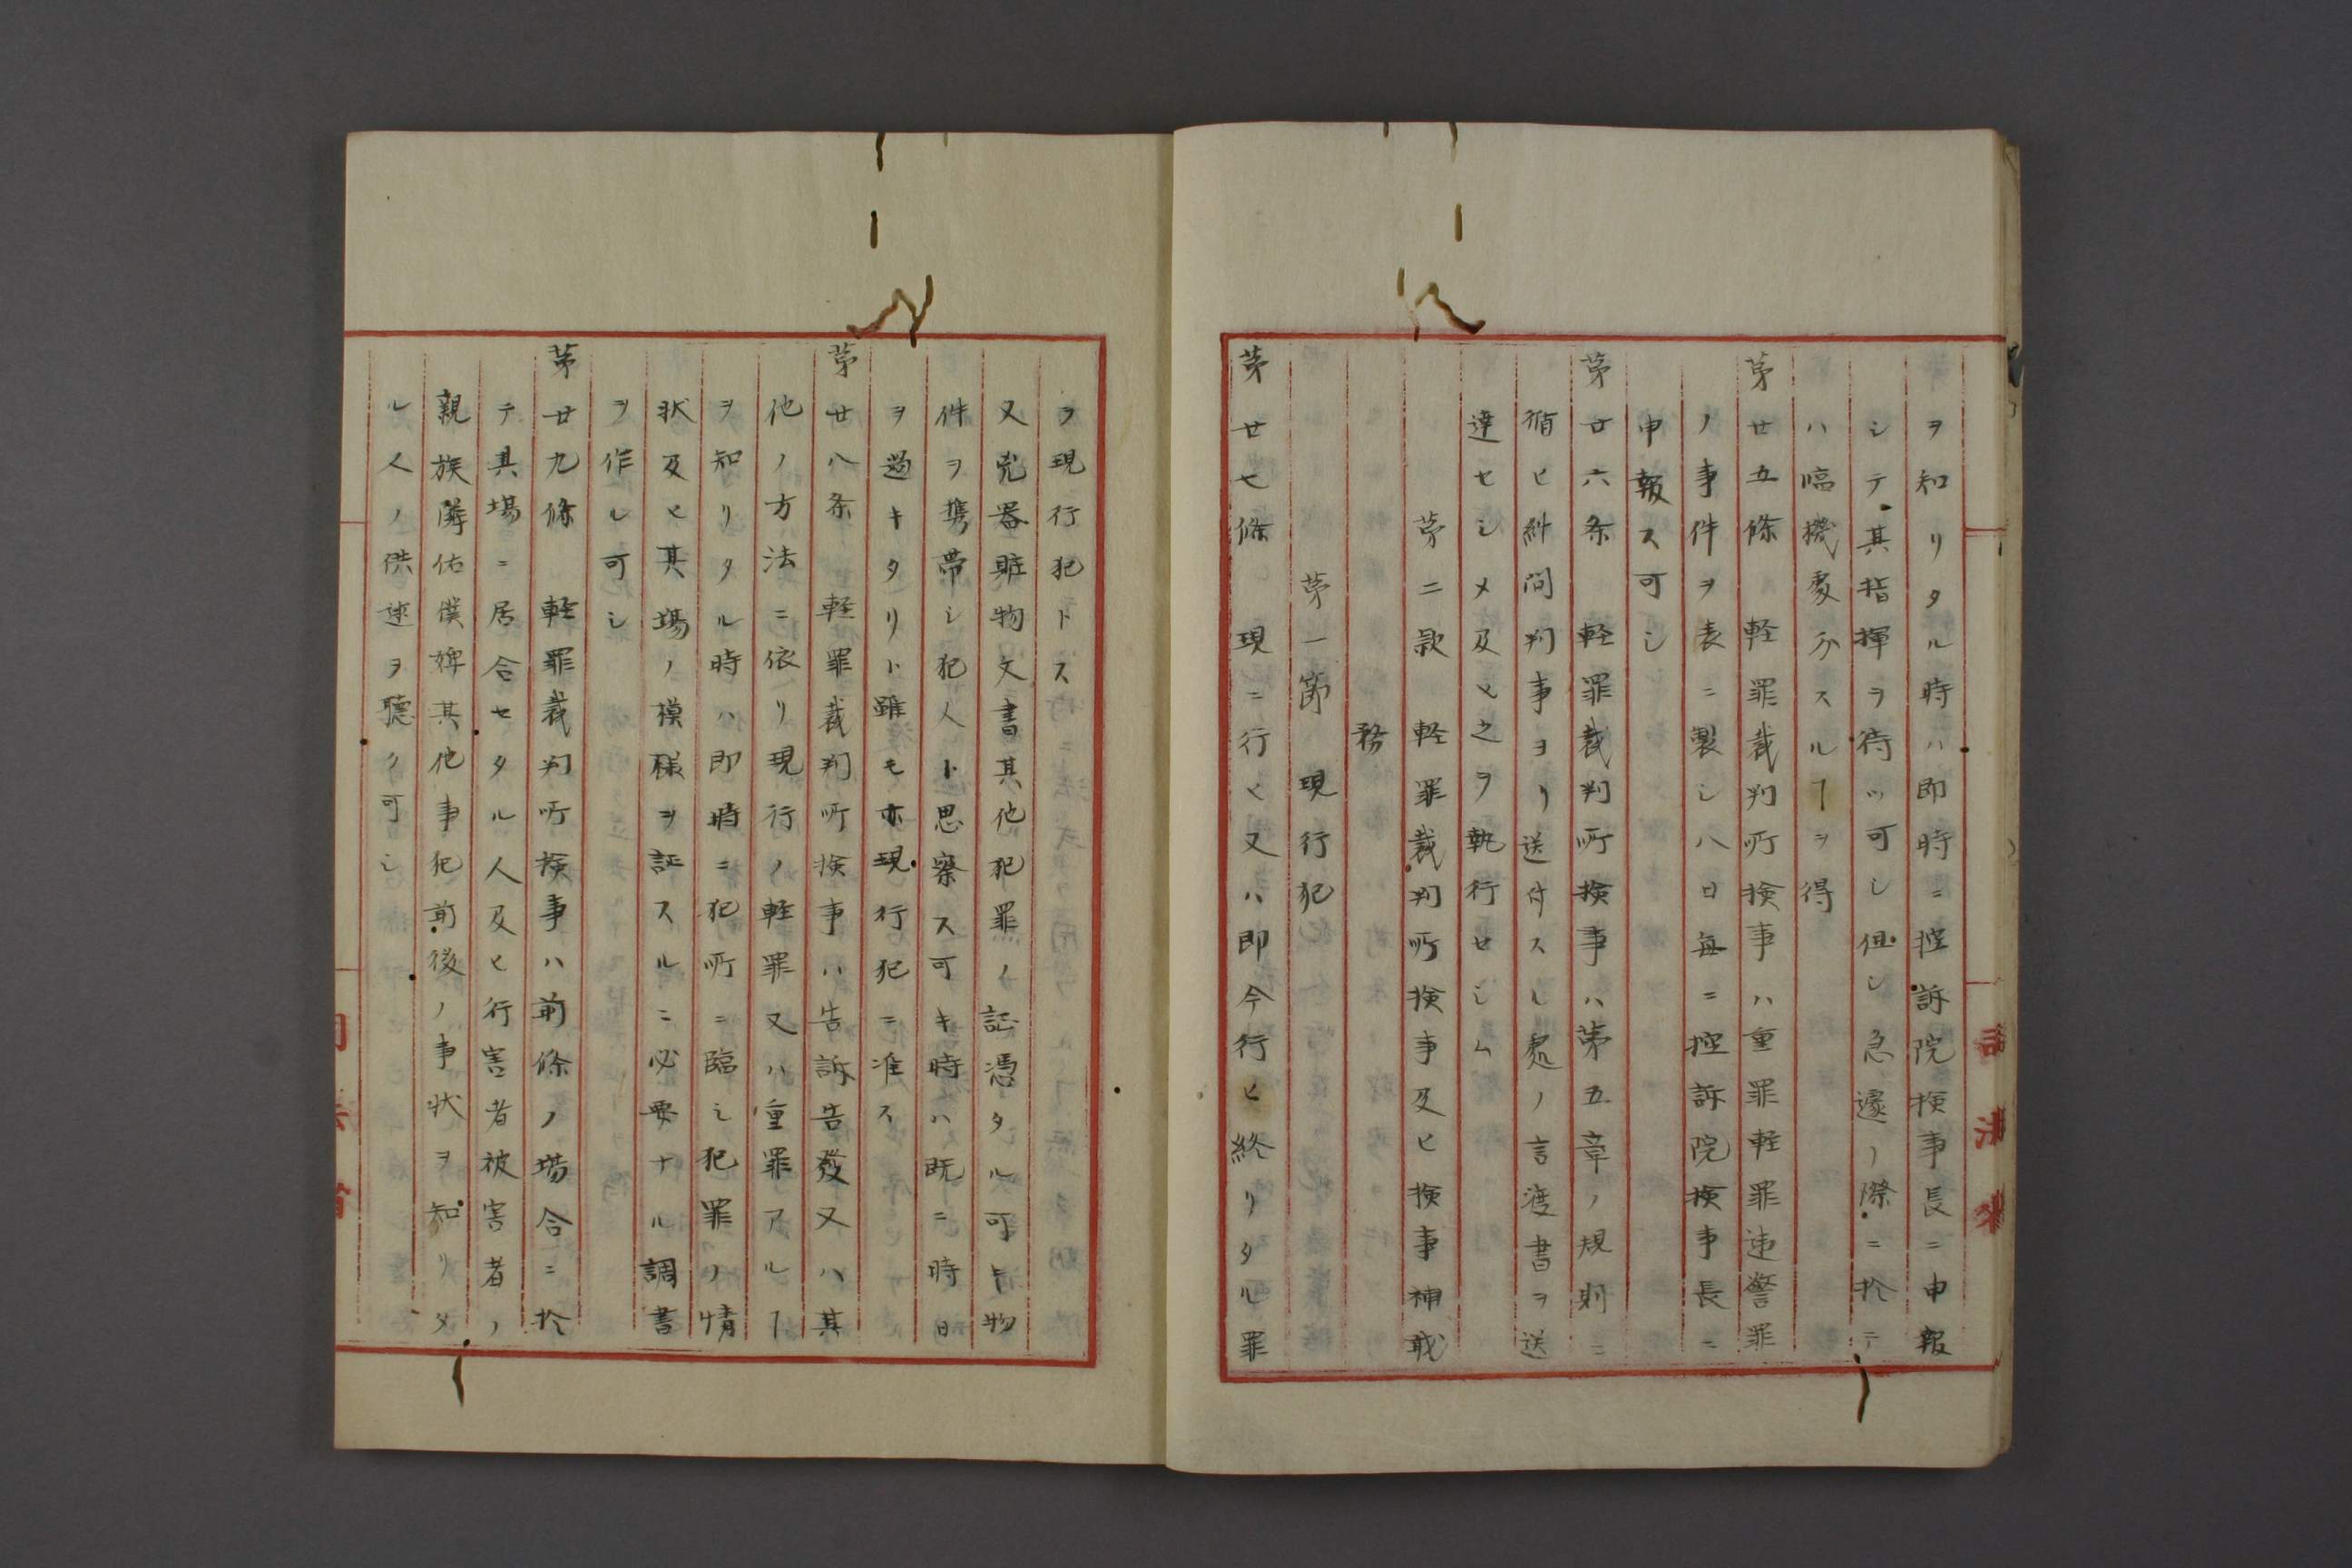 ヲ知リタル時ハ即時ニ控訴院検事長ニ申報
シテ其指揮ヲ待ツ可シ但シ急遽ノ際ニ於テ
ハ臨機処分スルヿヲ得
第廿五條　軽罪裁判所検事ハ重罪軽罪違警罪
ノ事件ヲ表ニ製シ八日毎ニ控訴院検事長ニ
申報ス可シ
第廿六条　軽罪裁判所検事ハ第五章ノ規則ニ
循ヒ糾問判事ヨリ送付スル処ノ言渡書ヲ送
達セシメ及ヒ之ヲ執行セシム
第二款　軽罪裁判所検事及ヒ検事補職
務
第一節　現行犯
第廿七條　現ニ行ヒ又ハ即今行ヒ終リタル罪
ヲ現行犯トス
又兇器贓物文書其他犯罪ノ証憑タル可キ物
件ヲ携帯シ犯人ト思察ス可キ時ハ既ニ時日
ヲ過キタリト雖モ亦現行犯ニ准ス
第廿八条　軽罪裁判所検事ハ告訴告發又ハ其
他ノ方法ニ依リ現行ノ軽罪又ハ重罪アルヿ
ヲ知リタル時ハ即時ニ犯所ニ臨シ犯罪ノ情
状及ヒ其場ノ模様ヲ証スルニ必要ナル調書
ヲ作ル可シ
第廿九條　軽罪裁判所検事ハ前條ノ場合ニ於
テ其場ニ居合セタル人及ヒ行害者被害者ノ
親族隣佑僕婢其他事犯前後ノ事状ヲ知リタ
ル人ノ供述ヲ聴ク可シ